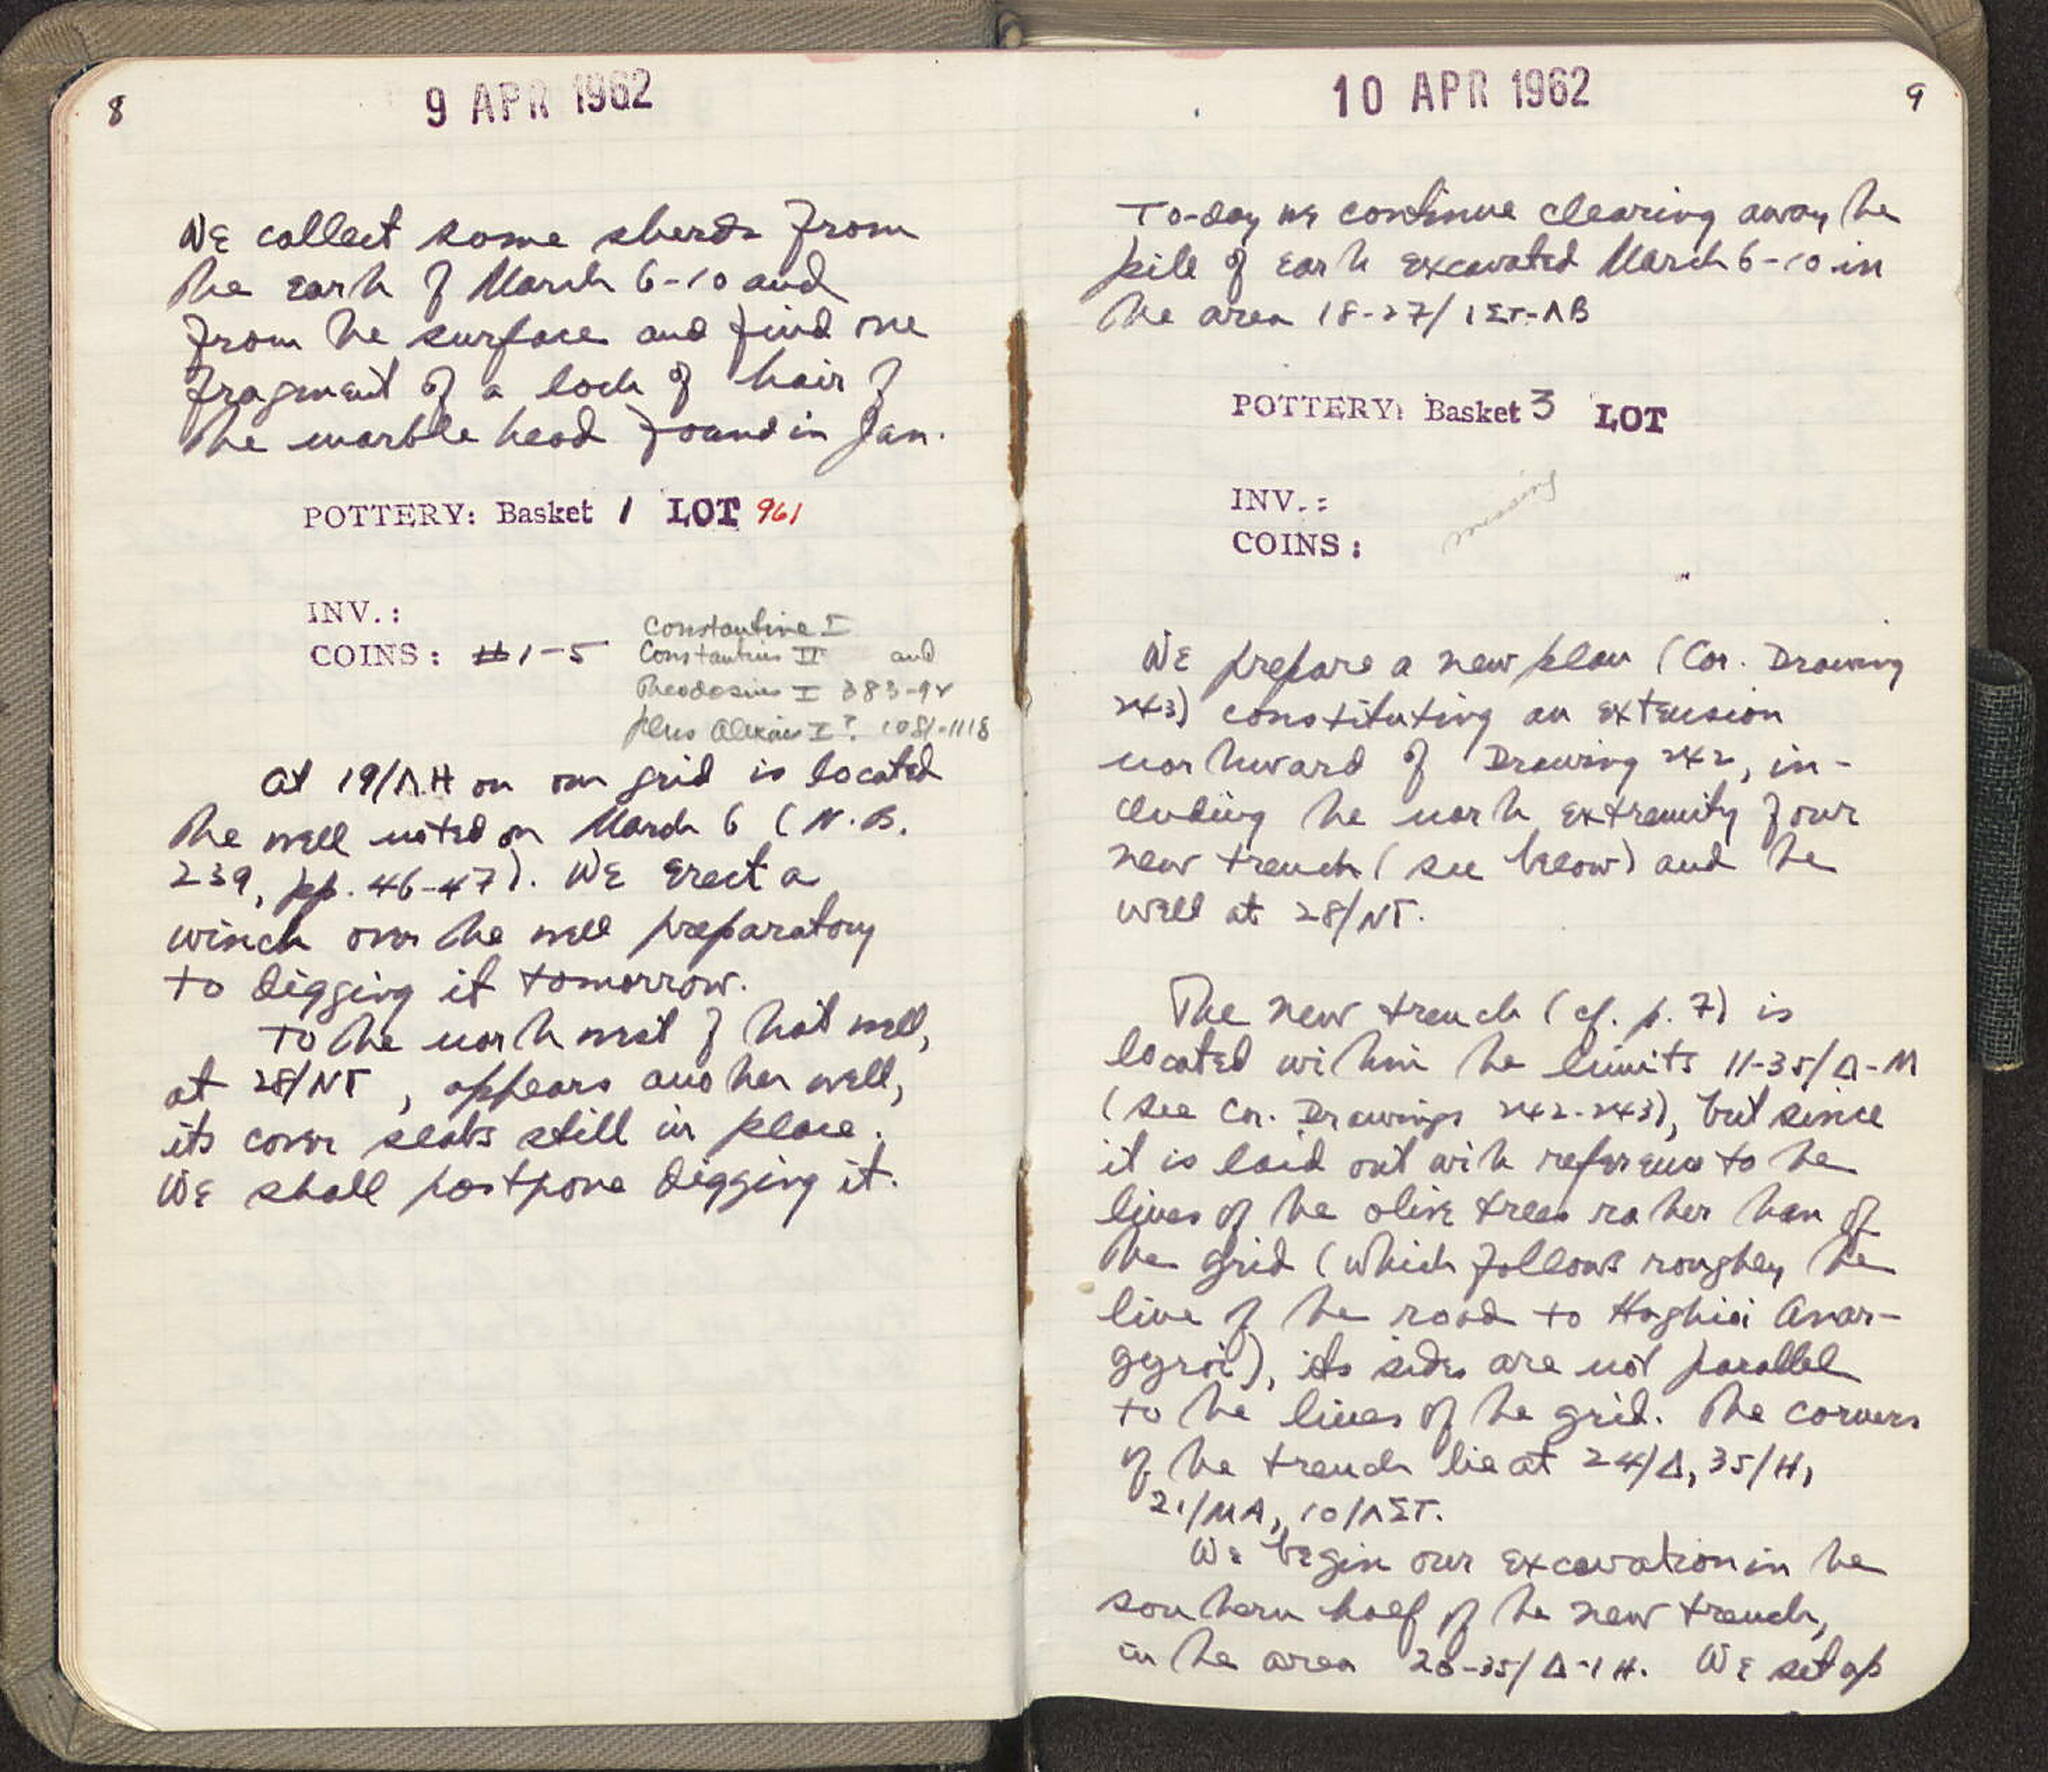 8
9 APR 1962
We collect some sherds from
the earth of March 6-10 and
from the surface and find one
fragment of a lock of hair of
the marble head found in Jan.
POTTERY: Basket 1 LOT 961
INV.:
COINS: #1-5
Constantine I
Constantius II and
Theodosius I 383-92
plus Alexius I? 1081-1118
At 19/ΛH on our grid is located
the well noted on March 6 (N.B.
239, pp. 46-47). We erect a
winch over the well preparatory
to digging it tomorrow.
To the northwest of that well,
at 28/NΓ, appears another well,
its cover slabs still in place.
We shall postpone digging it.
10 APR 1962
9
To-day we continue clearing away the
pile of earth excavated March 6-10 in
the area 18-27/IΣT-ΛB
POTTERY: Basket 3 LOT
INV.:
COINS:
missing
We prepare a new plan (Cor. Drawing
243) constituting an extension
northward of Drawing 242, in-
cluding the north extremity of our
new trench (see below) and the
well at 28/NΓ.
The new trench (cf. p. 7) is
located within the limits 11-35/Δ-M
(see Cor. Drawings 242-243), but since
it is laid out with reference to the
lines of the olive trees rather than of
the grid (which follows roughly the
line of the road to Haghioi Anar-
gyroi), its sides are not parallel
to the lines of the grid. The corners
of the trench lie at 24/Δ, 35/H,
21/MA, 10/ΛΣT.
We begin our excavation in the
southern half of the new trench,
in the area 20-35/Δ-IH. We set up